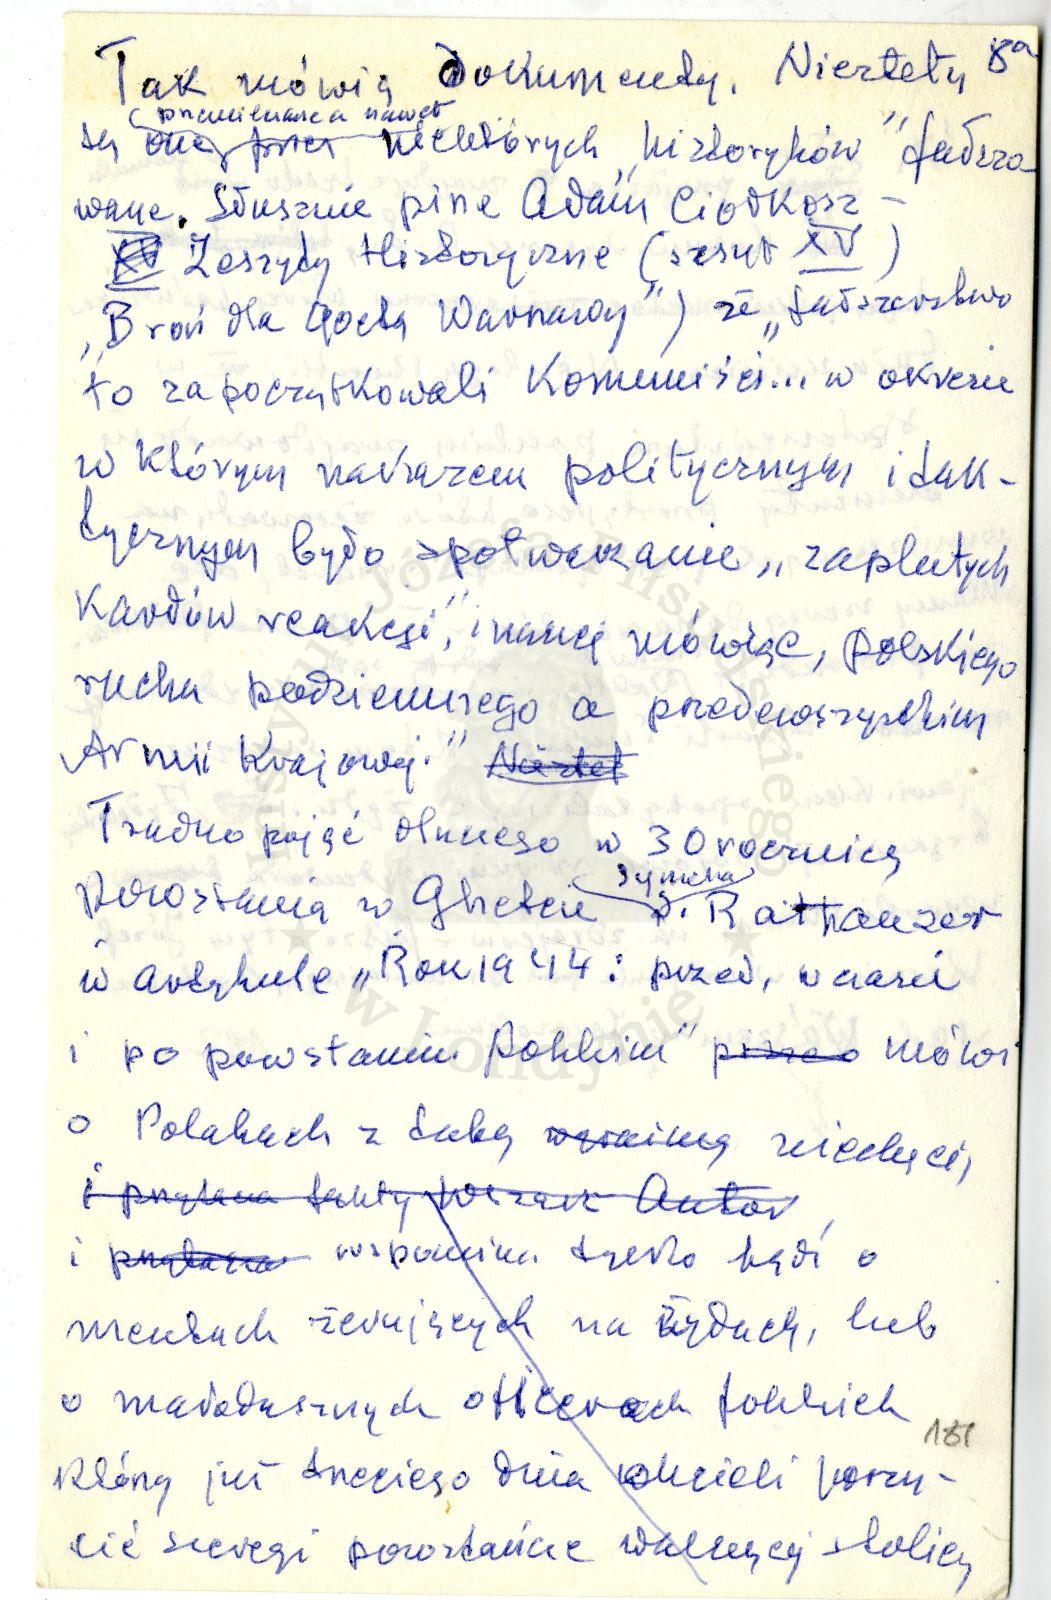 8a
Tak mówią dokumenty. Niestety
przemilczane nawet
są one przez niektórych "historyków" fałszo-
wane. Słusznie pisze Adam Ciołkosz -
XV Zeszyty Historyczne (zeszyt XV)
"Broń dla Getta Warszawy") że "fałszerstwo
to zapoczątkowali Komuniści... w okresie
w którym nakazem politycznym i tak-
tycznym było spotwarzanie "zaplutych
karłów reakcji", inaczej mówiąc, polskiego
ruchu podziemnego a przedewszystkim
Armii Krajowej." Niestet
Trudno pojąć dlaczego w 30 rocznicę
Powstania w Ghetcie
Symcha
Rathauzer
w artykule "Rok 1944: przed, w czasie
i po powstaniu polskim" mówi
o Polakach z taką niechęcią
i fakty Autor,
i wspomina tylko bądź o
mentach żerujących na Żydach, lub
o małodusznych oficerach polskich
którzy już trzeciego dnia chcieli porzu-
cić szeregi powstańcze walczącej stolicy
181
Instytut Józefa Piłsudskiego
w Londynie